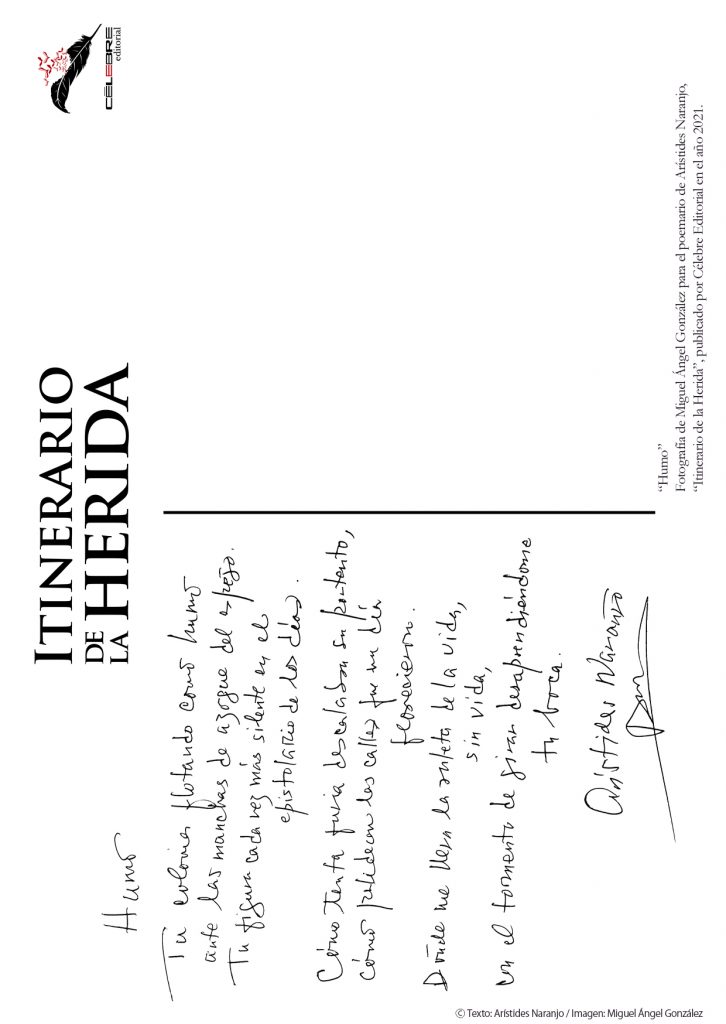 CÉLEBRE
editorial
ITINERARIO
DE
LA HERIDA
Humo
Tu colonia flotando como humo
ante las manchas de azogue del espejo.
Tu figura cada vez más silente en el
epistolario de los días.
Cómo tanta furia su portento,
cómo palidecen las calles que un día
florecieron.
Dónde me lleva la ruleta de la vida,
sin vida,
con el tormento de girar desaprendiéndome
tu boca.
Arístides Naranjo
“Humo”
Fotografía de Miguel Ángel González para el poemario de Arístides Naranjo,
“Itinerario de la Herida”, publicado por Célebre Editorial en el año 2021.
© Texto: Arístides Naranjo / Imagen: Miguel Ángel González